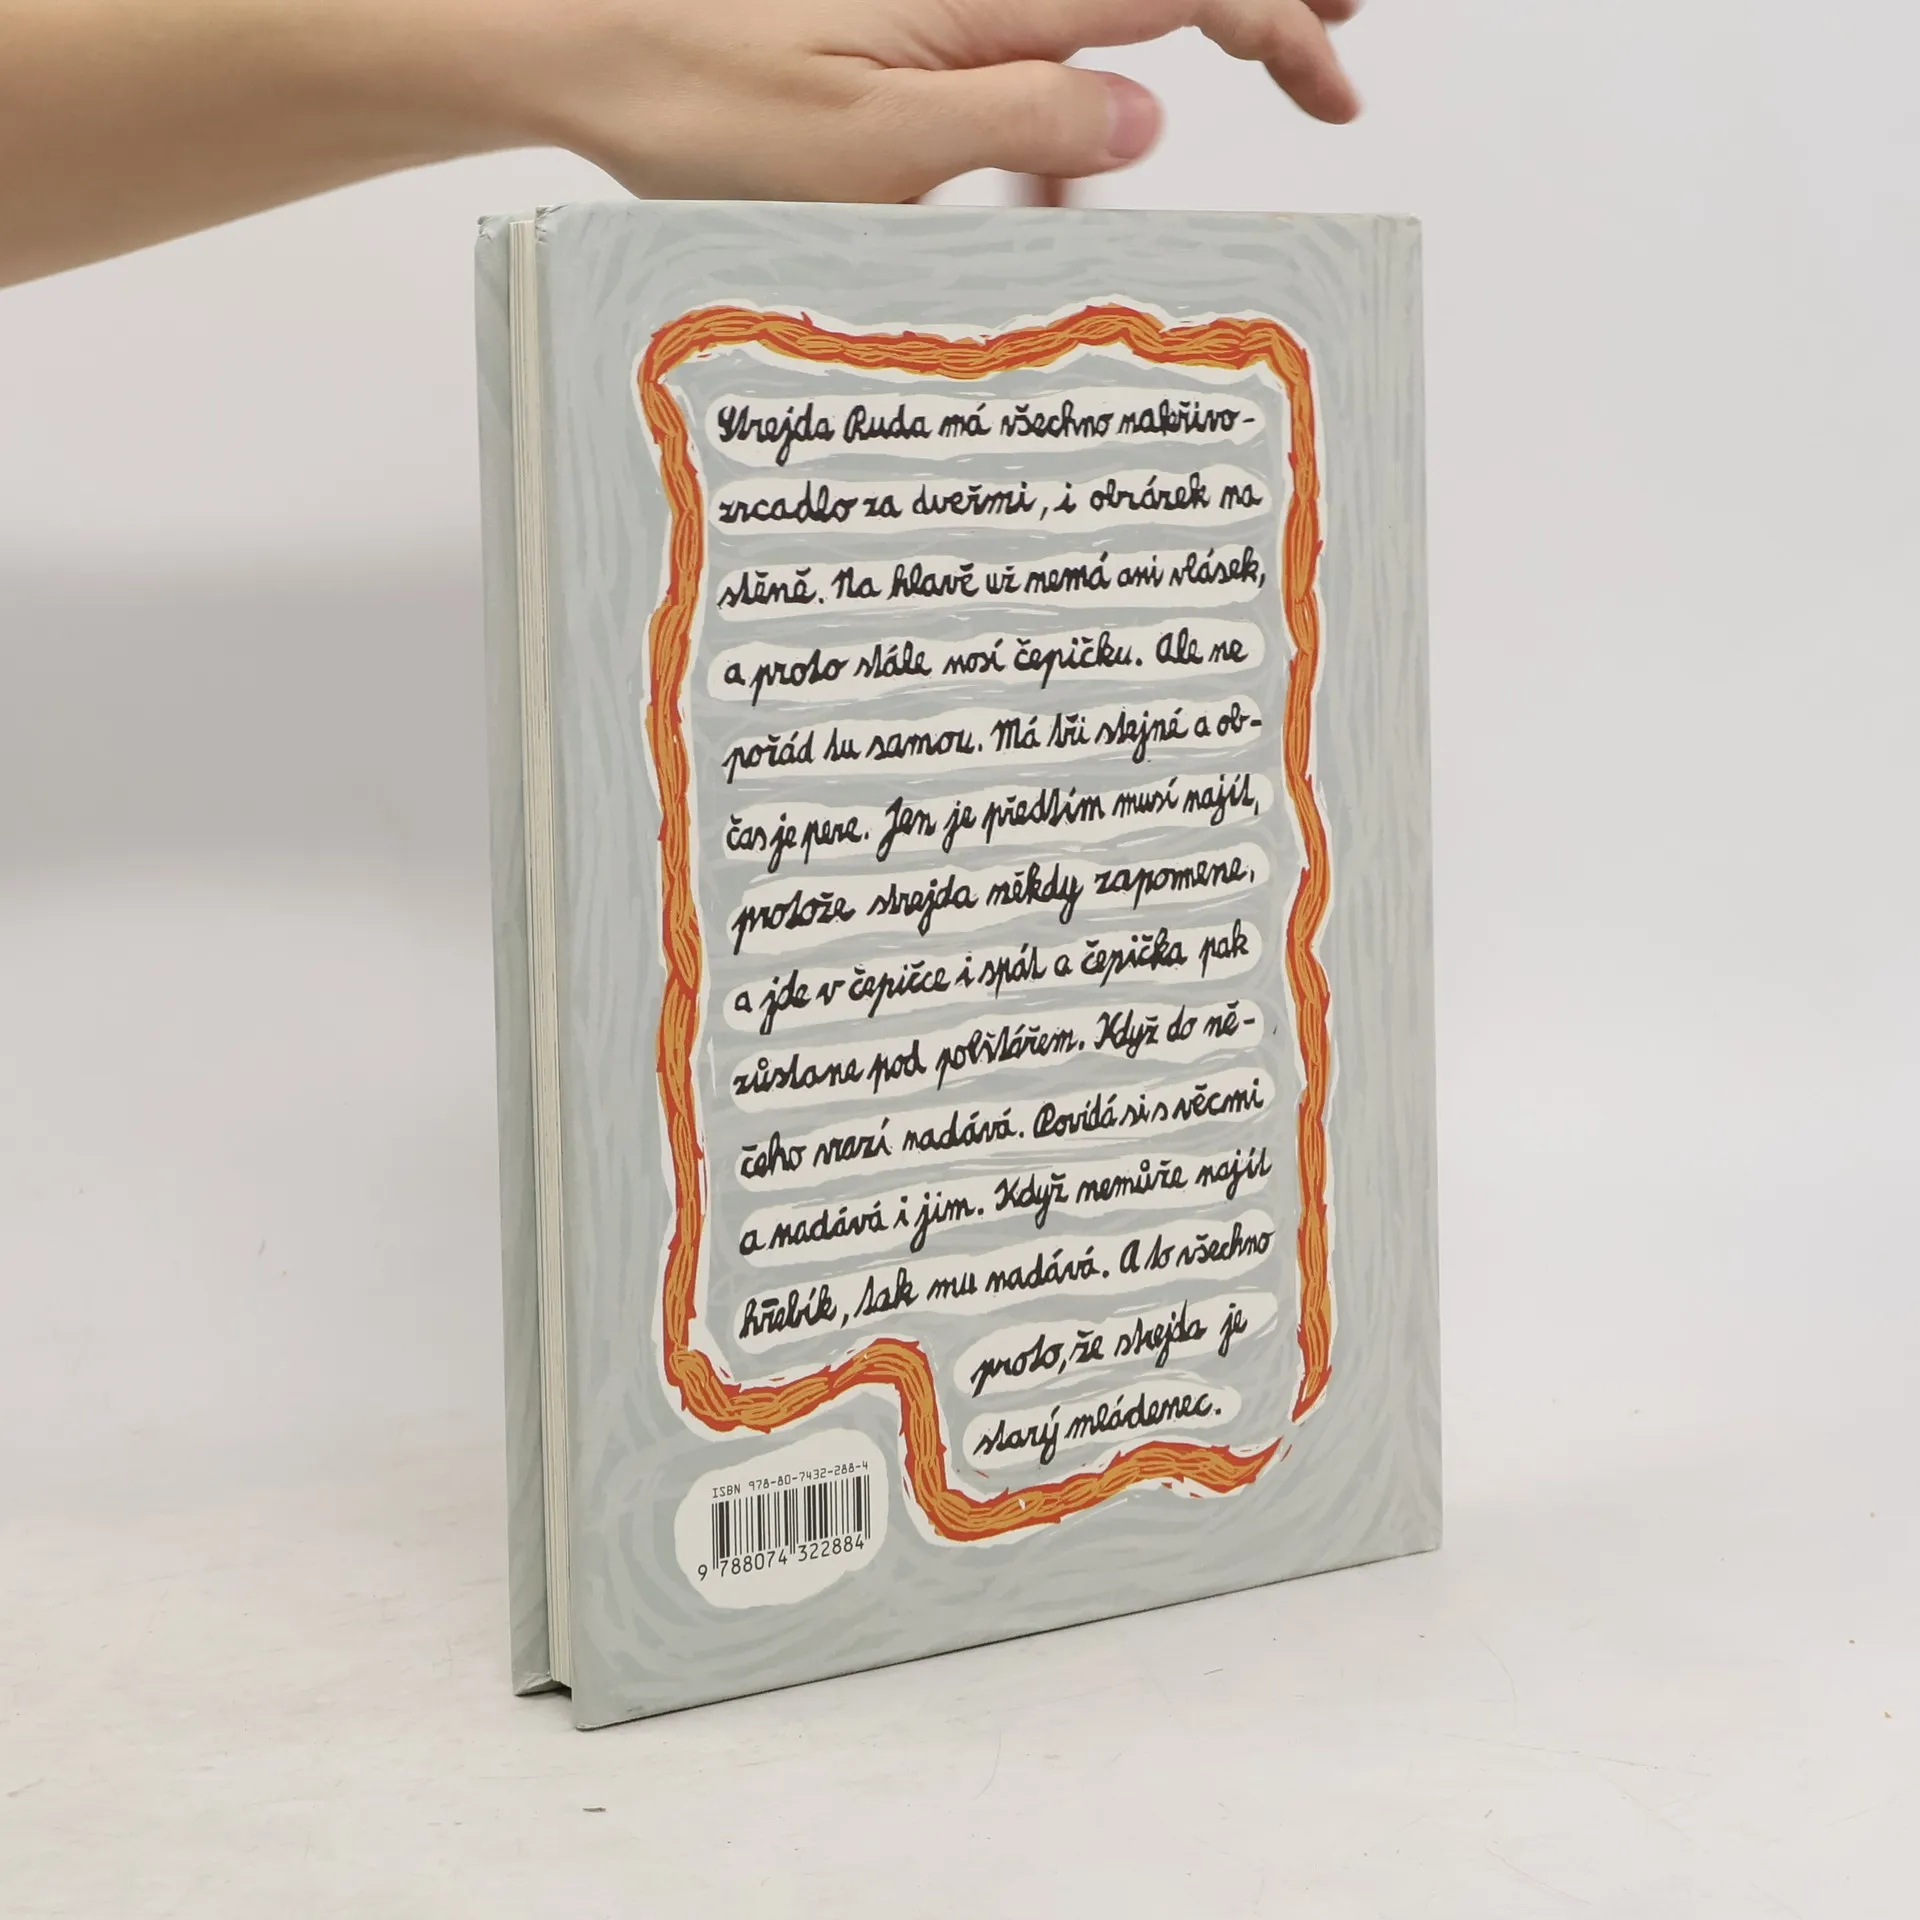 Strejda Ruda má všechno nakřivo-
zrcadlo za dveřmi, i obrázek na
stěně. Na hlavě už nemá ani vlásek,
a proto stále nosí čepičku. Ale ne
pořád tu samou. Má tři stejné a ob-
čas je pere. Jen je předtím musí najít,
protože strejda někdy zapomene,
a jde v čepičce i spát a čepička pak
zůstane pod polštářem. Když do ně-
čeho vrazí nadává. Povídá si s věcmi
a nadává i jim. Když nemůže najít
hřebík, tak mu nadává. A to všechno
proto, že strejda je
starý mládenec.
ISBN 978-80-7432-288-4
9 788074 322884